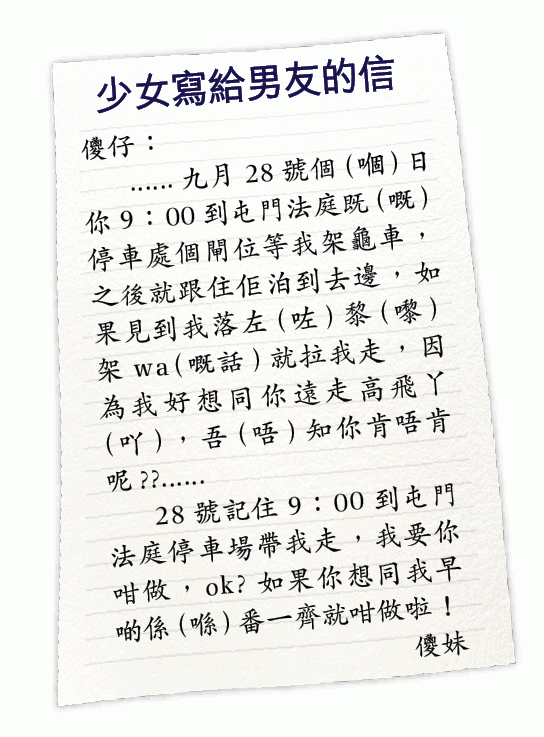 少女寫給男友的信
儍仔：
...... 九月 28 號個 (嗰) 日
你 9：00 到屯門法庭既 (嘅)
停車處個閘位等我架龜車，
之後就跟住佢泊到去邊，如
果見到我落左 (咗) 黎 (嚟)
架 wa(嘅話) 就拉我走，因
為我好想同你遠走高飛丫
(吖)，吾 (唔) 知你肯唔肯
呢 ??......
28 號記住 9：00 到屯門
法庭停車場帶我走，我要你
咁做，ok? 如果你想同我早
啲係 (喺) 番一齊就咁做啦！
儍妹